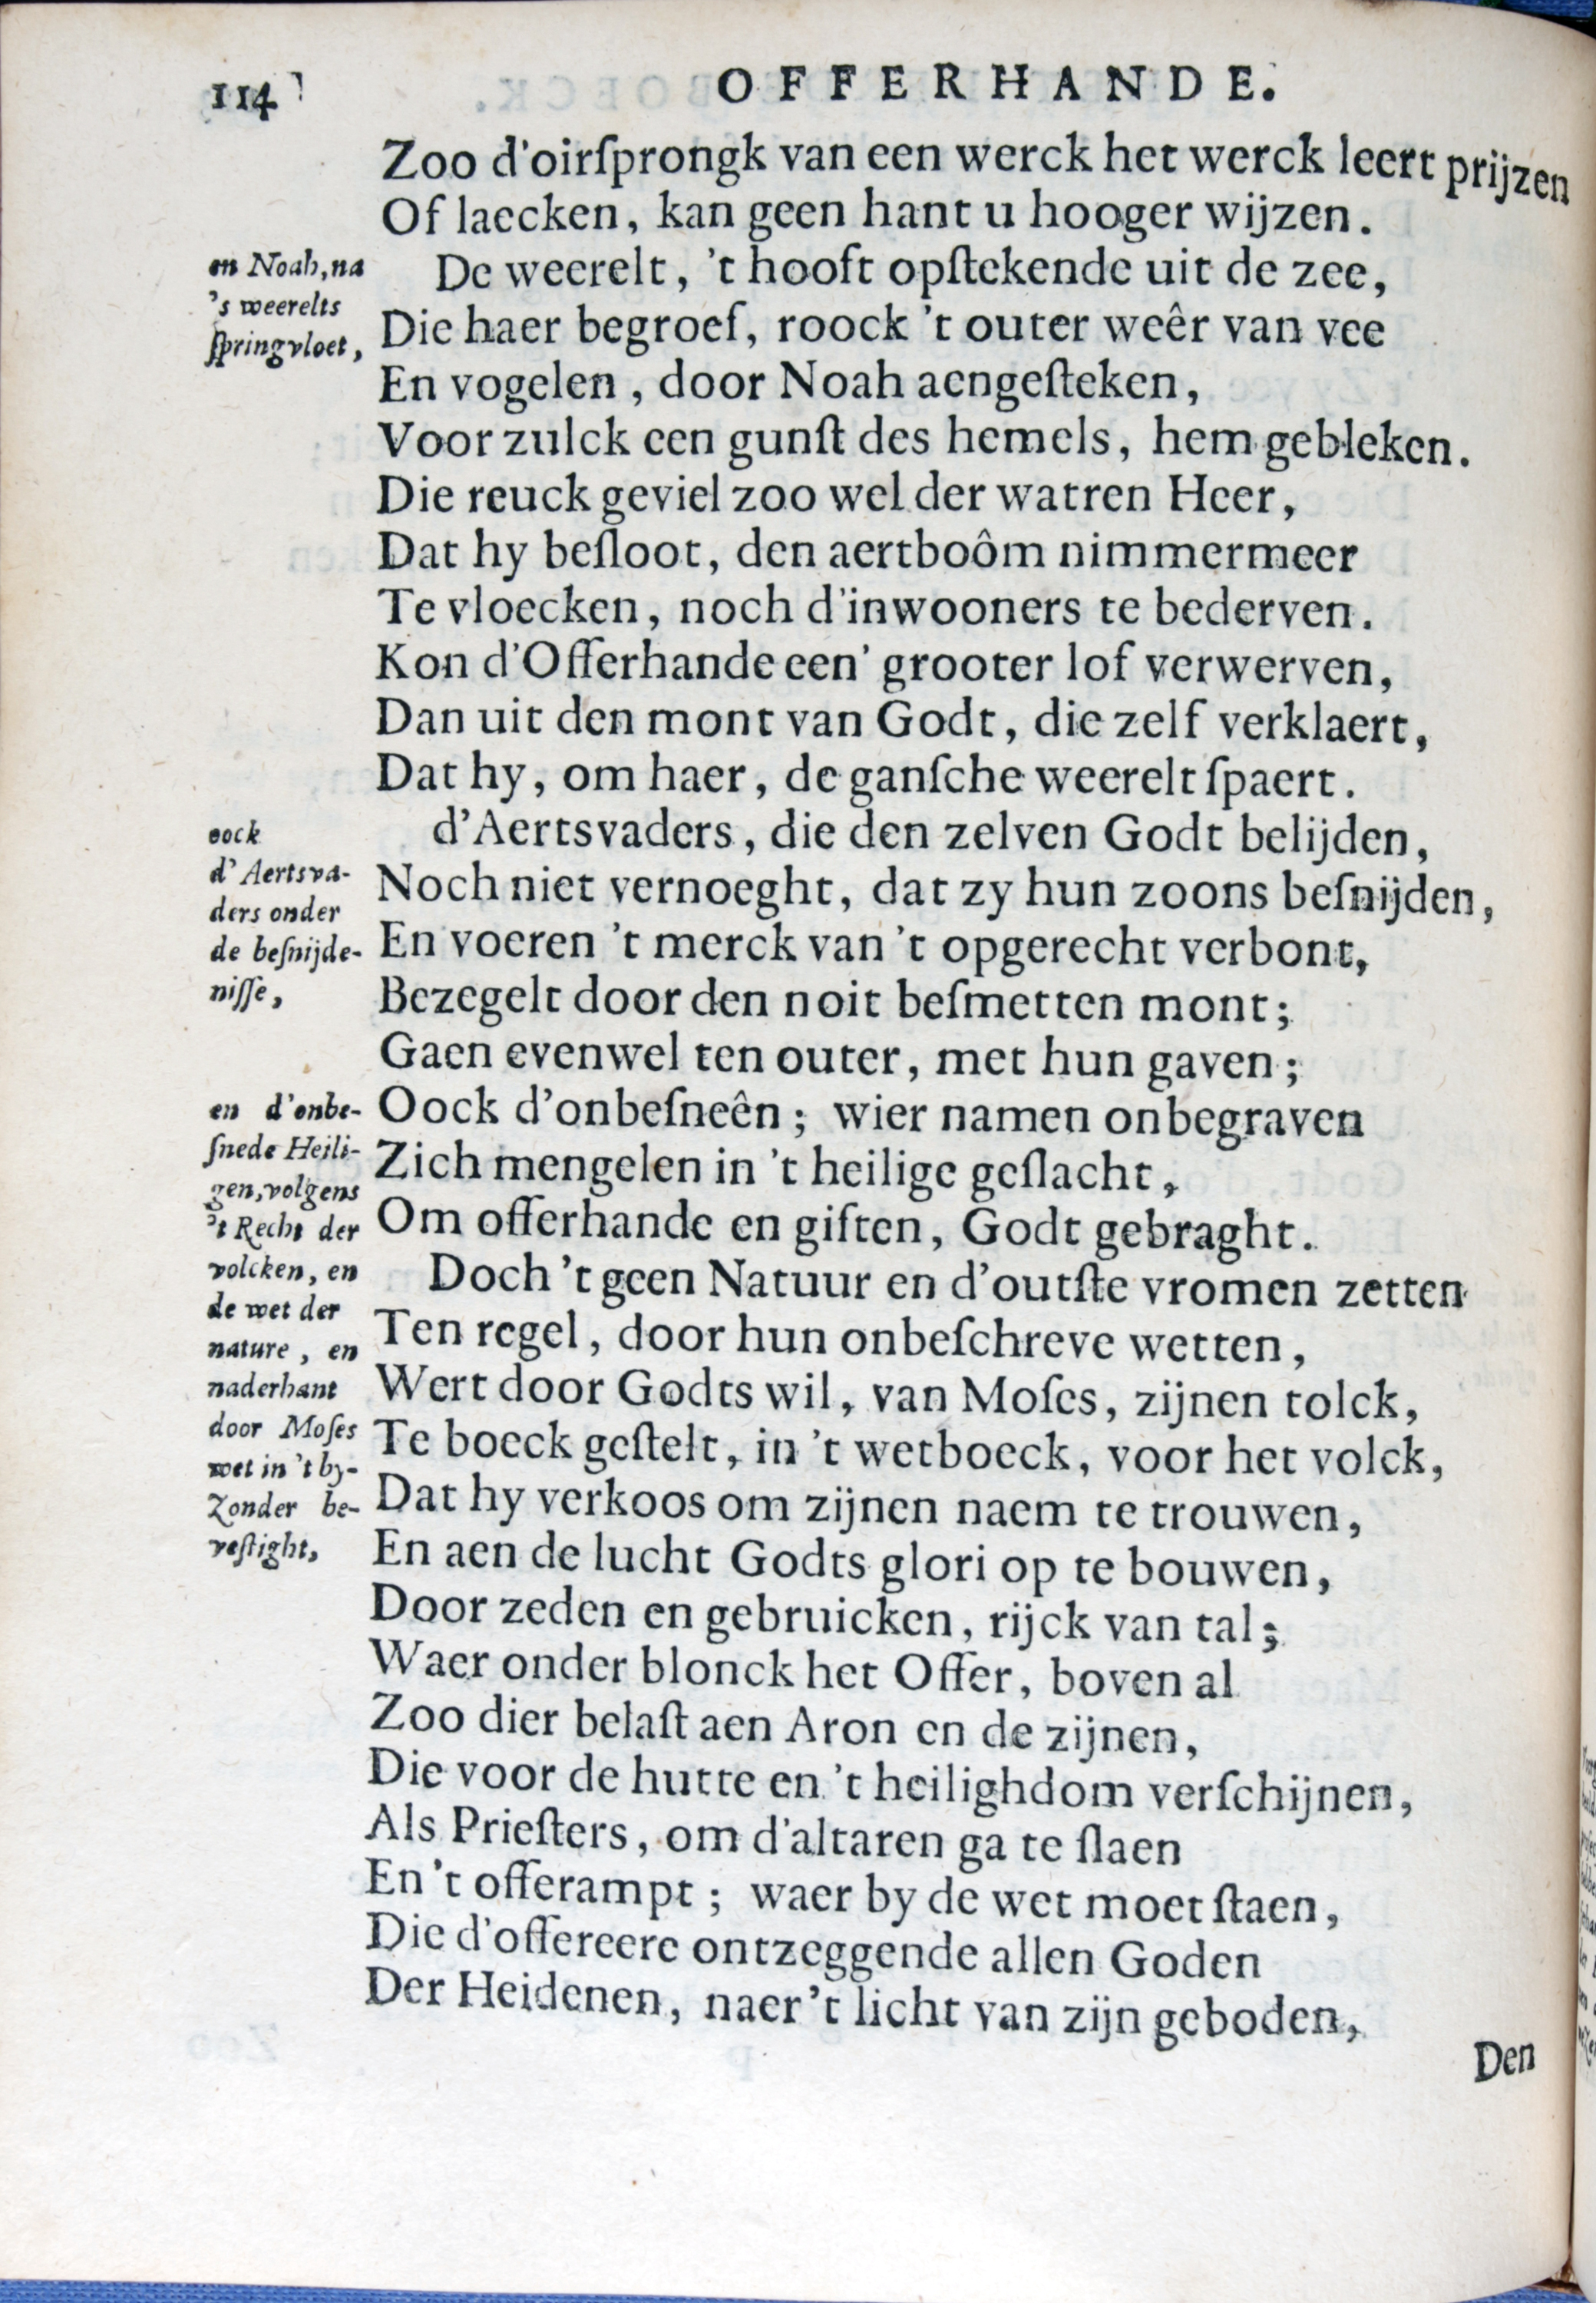 114
OFFERHANDE.
Zoo d'oirſprongk van een werck het werck leert prijzen
Of laecken, kan geen hant u hooger wijzen.
en Noah, na
's weerelts
ſpringvloet,
De weerelt, 't hooft opſtekende uit de zee,
Die haer begroef, roock 't outer weêr van vee
En vogelen, door Noah aengeſteken,
Voor zulck een gunſt des hemels, hem gebleken.
Die reuck geviel zoo wel der watren Heer,
Dat hy beſloot, den aertboôm nimmermeer
Te vloecken, noch d'inwooners te bederven.
Kon d'Offerhande een' grooter lof verwerven,
Dan uit den mont van Godt, die zelf verklaert,
Dat hy, om haer, de ganſche weerelt ſpaert.
oock
d'Aertsva-
ders onder
de beſnijde-
niſſe,
d'Aertsvaders, die den zelven Godt belijden,
Noch niet vernoeght, dat zy hun zoons beſnijden,
En voeren 't merck van 't opgerecht verbont,
Bezegelt door den noit beſmetten mont;
Gaen evenwel ten outer, met hun gaven;
en d'onbe-
ſnede Heili-
gen, volgens
't Recht der
volcken, en
de wet der
nature, en
naderhant
door Moſes
wet in 't by-
zonder be-
veſtight,
Oock d'onbeſneên; wier namen onbegraven
Zich mengelen in 't heilige geſlacht,
Om offerhande en giften, Godt gebraght.
Doch 't geen Natuur en d'outſte vromen zetten
Ten regel, door hun onbeſchreve wetten,
Wert door Godts wil, van Moſes, zijnen tolck,
Te boeck geſtelt, in 't wetboeck, voor het volck,
Dat hy verkoos om zijnen naem te trouwen,
En aen de lucht Godts glori op te bouwen,
Door zeden en gebruicken, rijck van tal;
Waer onder blonck het Offer, boven al
Zoo dier belaſt aen Aron en de zijnen,
Die voor de hutte en 't heilighdom verſchijnen,
Als Prieſters, om d'altaren ga te ſlaen
En 't offerampt; waer by de wet moet ſtaen,
Die d'offereere ontzeggende allen Goden
Der Heidenen, naer 't licht van zijn geboden,
Den